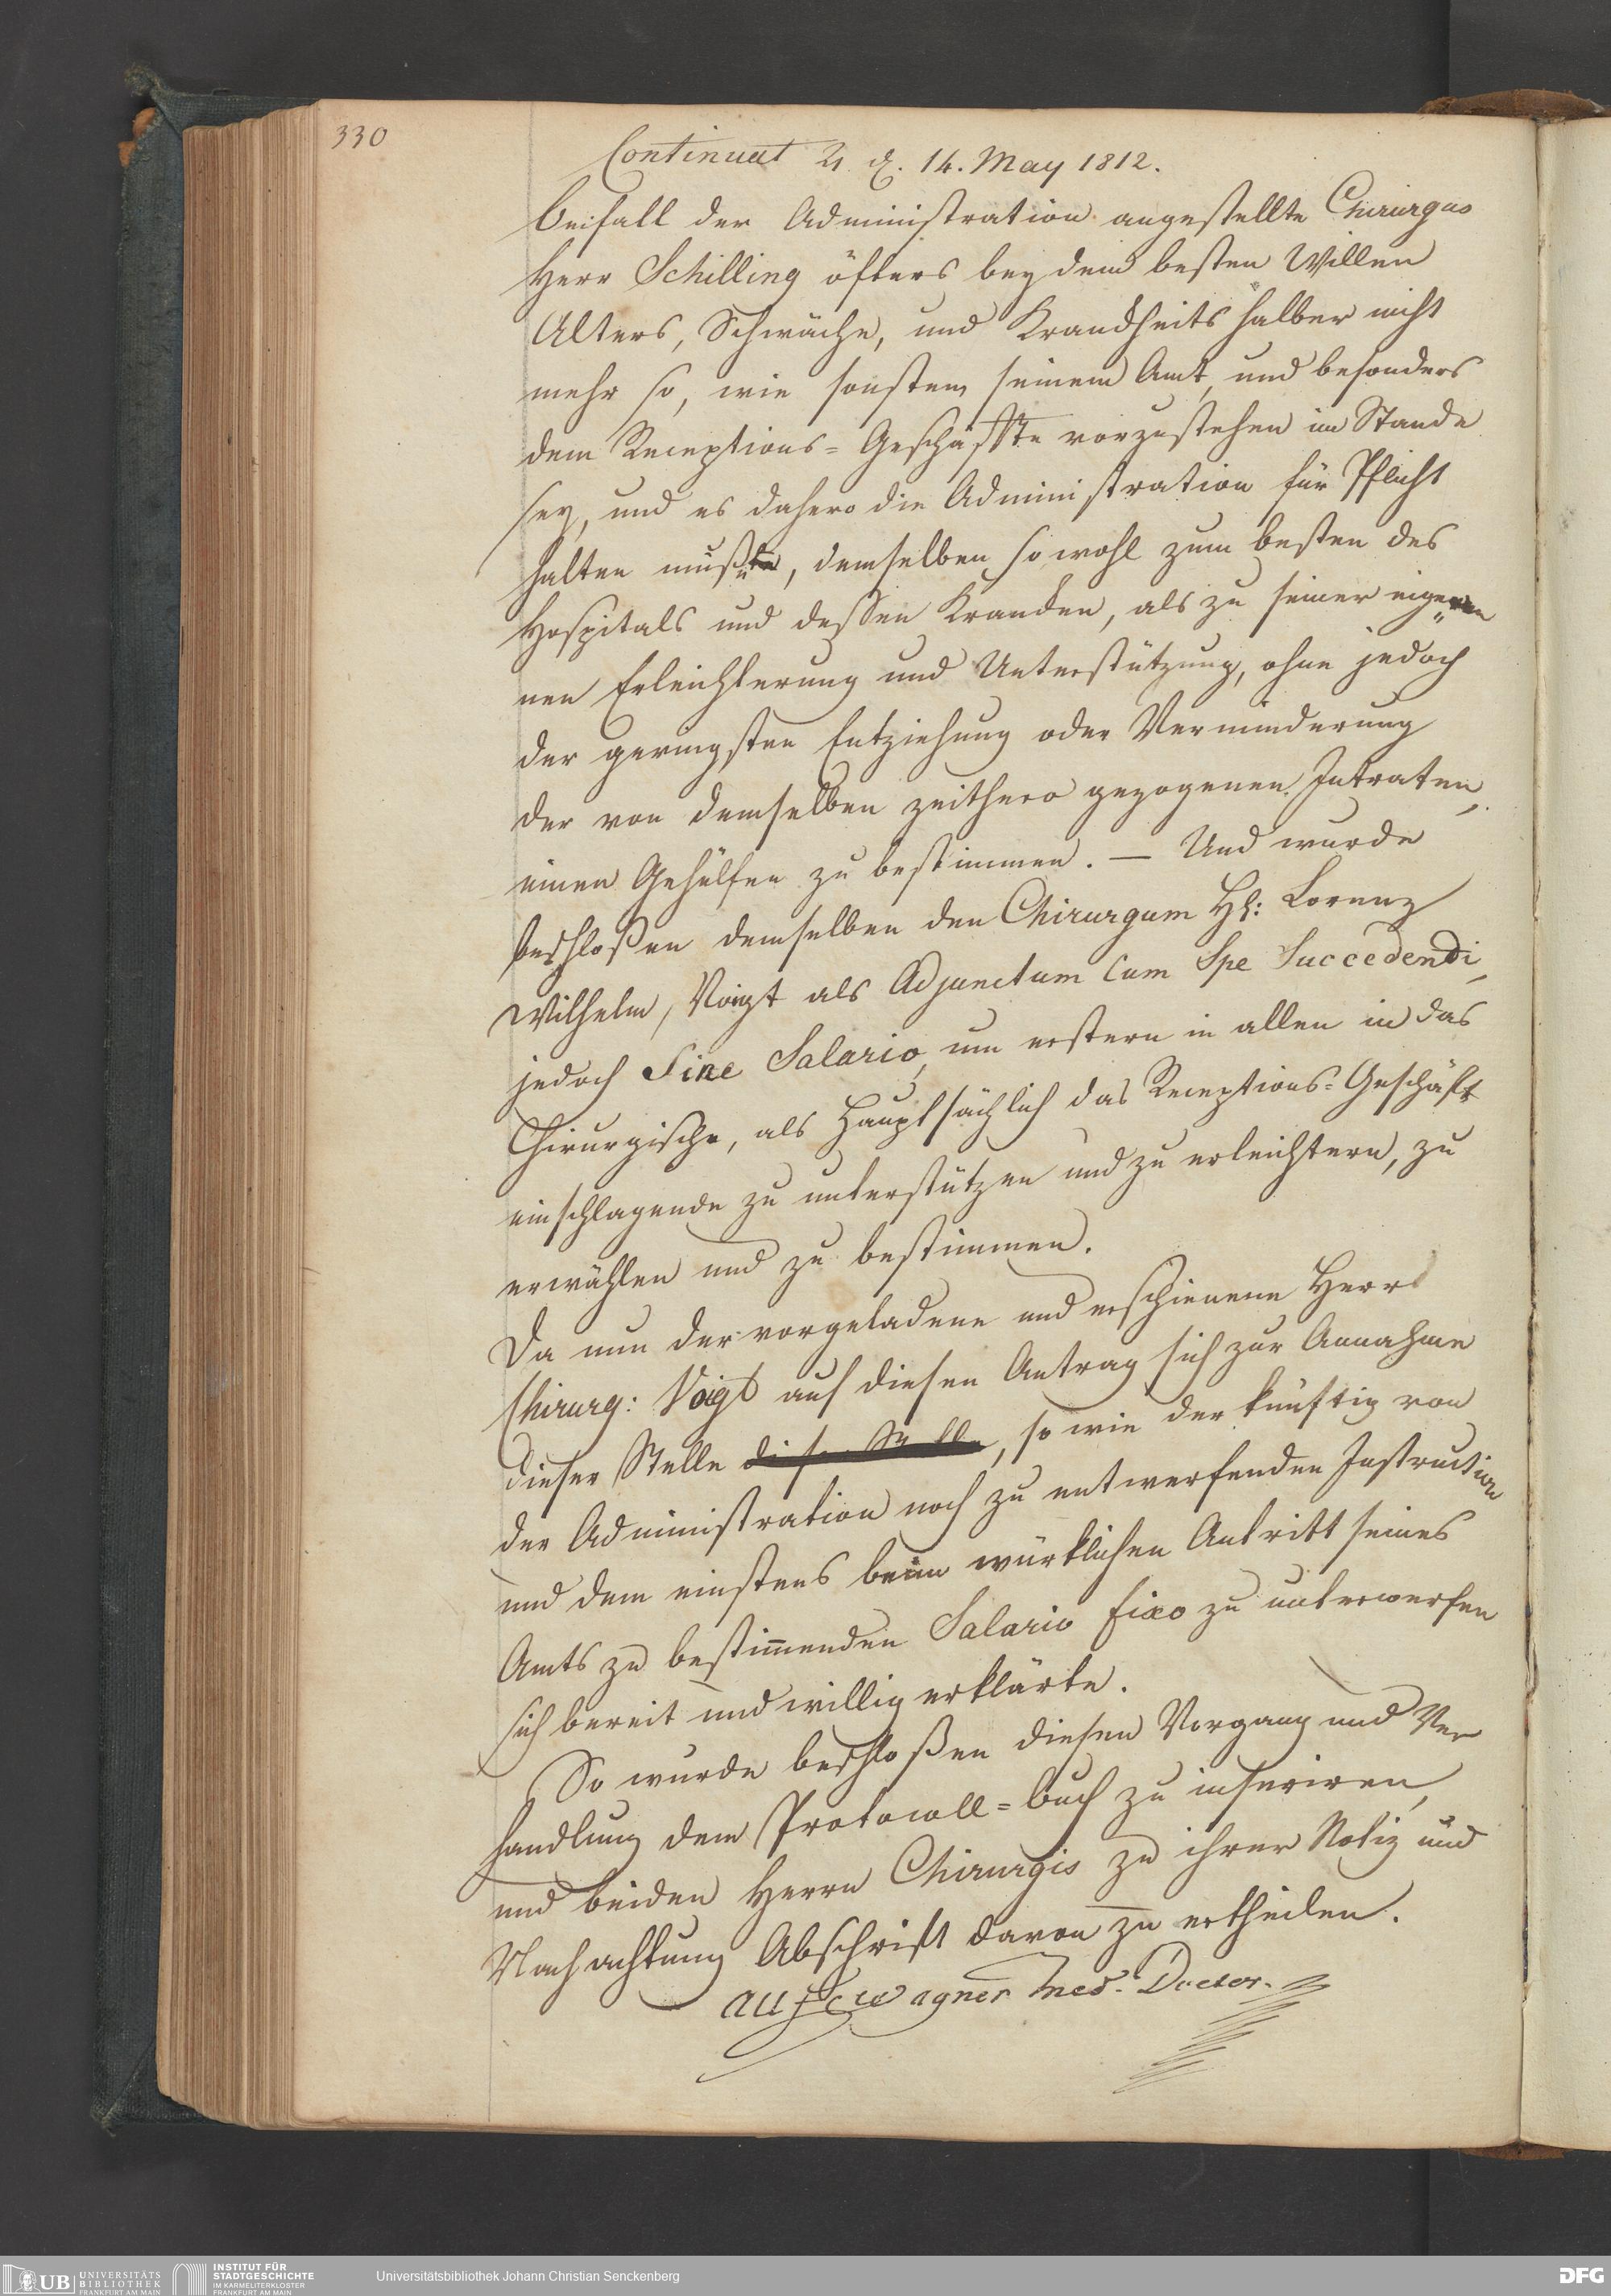 330
Continuat ♃ d. 14. May 1812.
Beifall der Administration angestellte Chirurgus
Herr Schilling öfters bey dem besten Willen
Alters, Schwäche, und Krandheits halber nicht
mehr so, wie sonsten seinem Amt, und besonders
dem Receptions=Geschäffte vorzustehen im Stande
sey, und es dahero die Administration für Pflicht
halten mußte, demselben so wohl zum besten des
Hospitals und dessen Krancken, als zu seiner eige
nen Erleichterung und Unterstützung, ohne jedoch
der geringsten Entziehung oder Verminderung
der von demselben zeithero gezogenen Intraten,
einen Gehülfen zu bestimmen. — Und wurde
beschloßen demselben den Chirurgum H: Lorenz
Wilhelm, Voigt als Adjunctum Cum Spe Succedendi,
jedoch Sine Salario, um erstern in allen in das
Chirurgische, als Hauptsächlich das Receptions=Geschäft
einschlagende zu unterstützen und zu erleichtern, zu
erwählen und zu bestimmen.
Da nun der vorgeladene und erschienene Herr
Chirurg: Voigt auf diesen Antrag sich zur Annahme
dieser Stelle dieser Stelle, so wie der künftig von
der Administration noch zu entwerfenden Instruction
und dem einstens beim würklichen Antritt seines
Amts zu bestimmenden Salario fixo zu unterwerfen
sich bereit und willig erklärte.
So wurde beschloßen diesen Vorgang und Ver
handlung dem Protocoll=buch zu inseriren,
und beiden Herrn Chirurgis zu ihrer Notiz und
Nachachtung Abschrift davon zu ertheilen.
Wagner Med. Doctor.
UB UNIVERSITÄTS
BIBLIOTHEK
FRANKFURT AM MAIN
INSTITUT FÜR
STADTGESCHICHTE
IM KARMELITERKLOSTER
FRANKFURT AM MAIN
Universitätsbibliothek Johann Christian Senckenberg
DFG